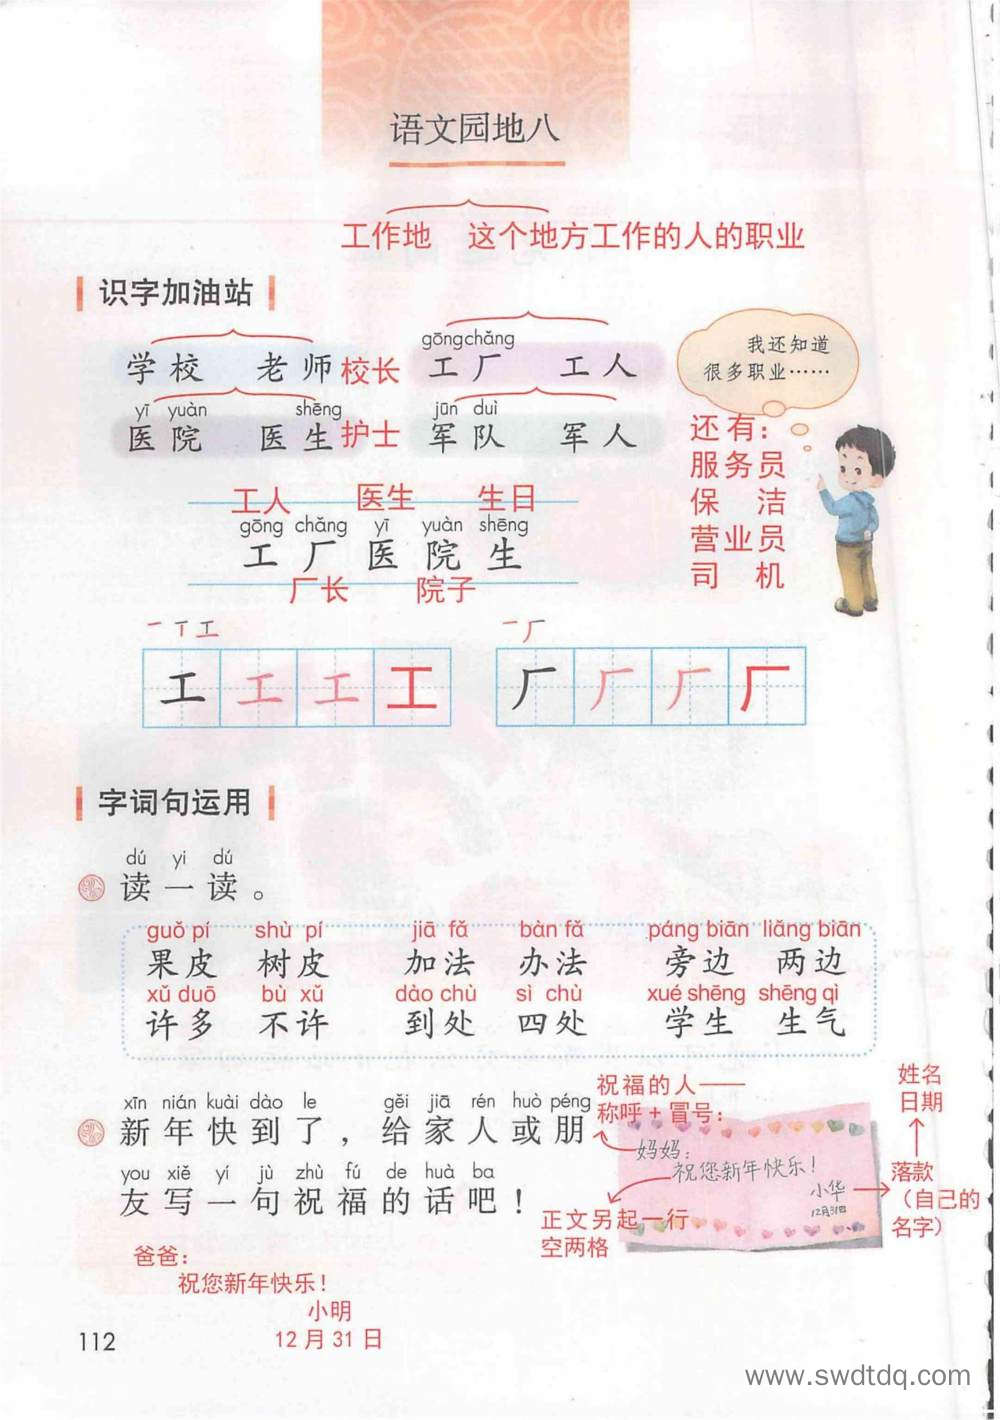 语文园地八
工作地 这个地方工作的人的职业
识字加油站
gōngchǎng
学校 老师 校长 工厂 工人
我还知道
很多职业……
yī yuàn shēng jūn duì
医院 医生 护士 军队 军人
还有:
服务员
保洁
营业员
司机
工人 医生 生日
gōng chǎng yī yuàn shēng
工厂医院生
厂长 院子
一丅工 一厂
工工工工 厂厂厂厂
字词句运用
dú yi dú
读一读。
guǒ pí shù pí jiā fǎ bàn fǎ páng biān liǎng biān
果皮 树皮 加法 办法 旁边 两边
xǔ duō bù xǔ dào chù sì chù xué shēng shēng qì
许多 不许 到处 四处 学生 生气
xīn nián kuài dào le gěi jiā rén huò péng
新年快到了,给家人或朋
you xiě yí jù zhù fú de huà ba
友写一句祝福的话吧!
祝福的人——
称呼+冒号:
妈妈:
祝您新年快乐!
小华
12月31日
姓名
日期
落款
(自己的
名字)
正文另起一行
空两格
爸爸:
祝您新年快乐!
小明
12月31日
112
www.swdtdq.com